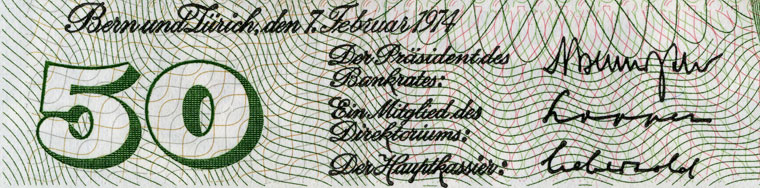 Bern und Zürich, den 7. Februar 1974
50
Der Präsident des
Bankrates:
Ein Mitglied des
Direktoriums:
Der Hauptkassier: